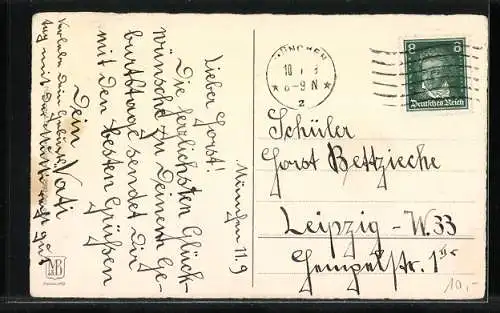 München 11.9
Lieber Horst!
Die herzlichsten Glück-
wünsche zu Deinem Ge-
burtstage sendet Dir
mit den besten Grüßen
Dein Vati
Verlebe Dein Geburts-
tag mit der Mutti recht gut
MÜNCHEN
8-9 N
2
8 8
Deutsches Reich
Schüler
Horst Bettzieche
Leipzig - W. 33
Hempelstr. 1
MB
10,-